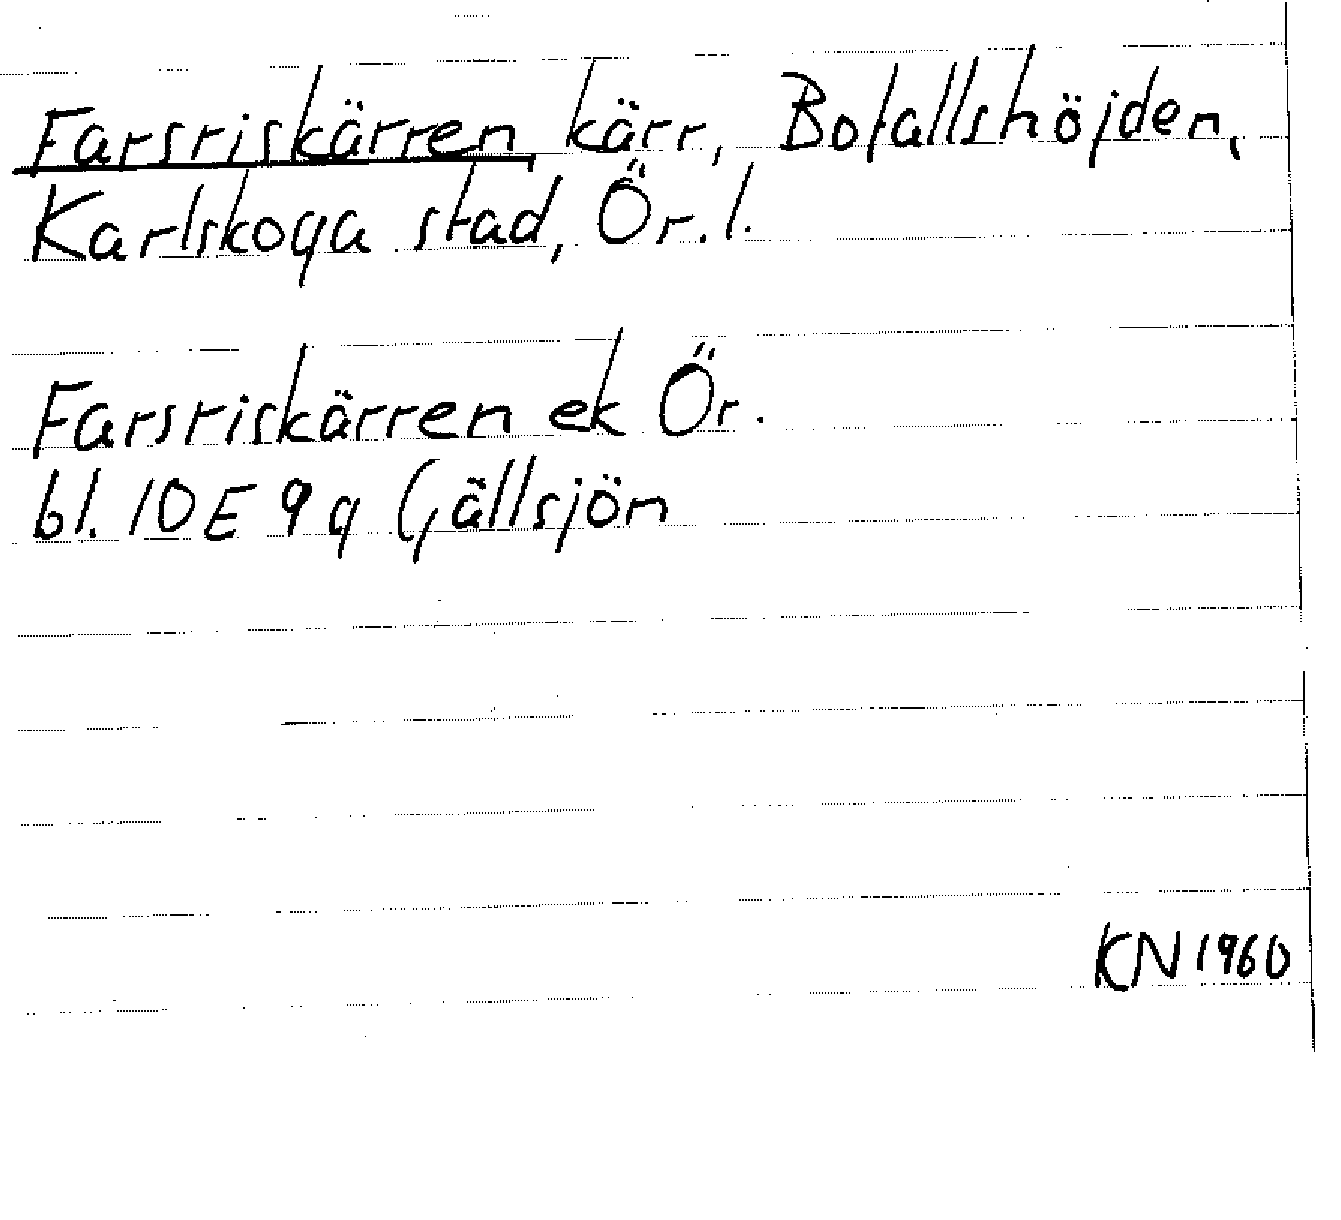 Farsriskärren kärr, Bofallshöjden,
Karlskoga stad, Ör. l.
Farsriskärren ek Ör.
bl. 10 E 9 g Gällsjön
KN 1960